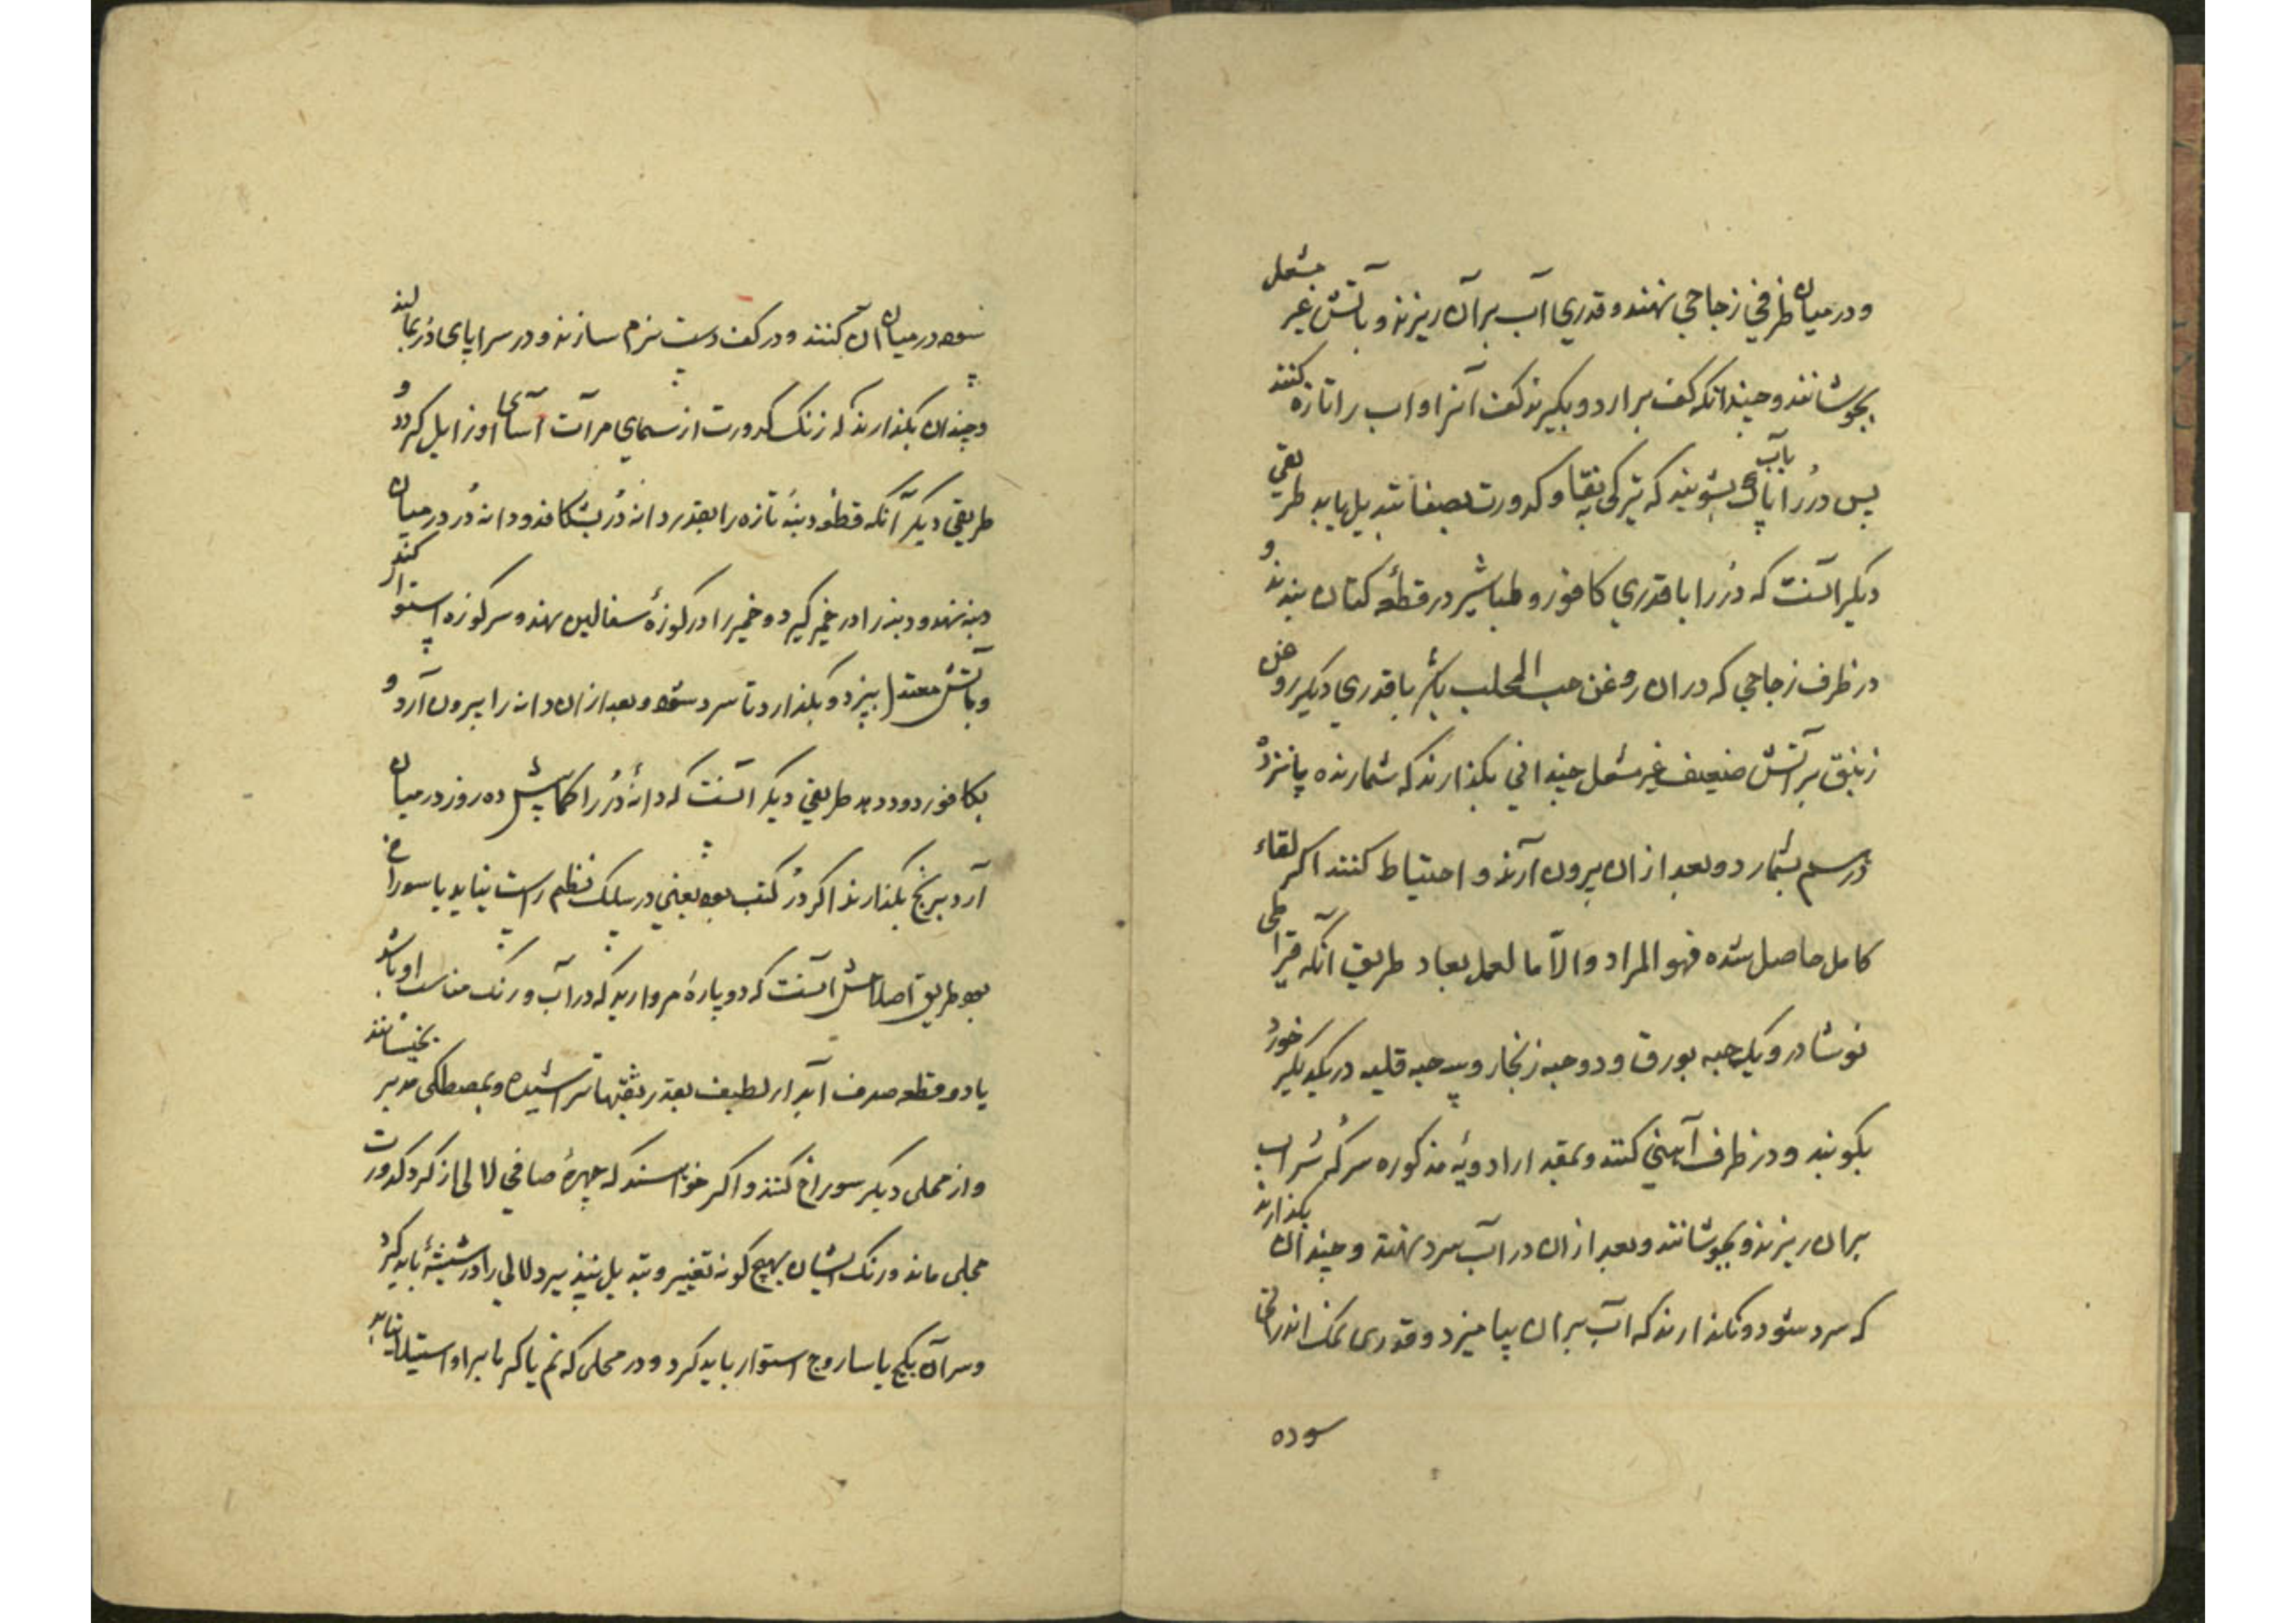 و در میان ظرفی زجاجی نهند و قدری آب بر آن ریزند و بآتش غیر مشعل
بجوشانند و چندانکه کف برارد و بگیرند کف آنرا و آب را تازه کنند
پس در را بآب پاک بشویند که تیرکی بنقا و کدورت بصفا تبدیل یابد طریقی
دیگر آنست که دُر را با قدری کافور و طباشیر در قطعه کتان بندند و
در ظرف زجاجی که در ان روغن حب المحلب باشد با قدری دیگر روغن
زیبق بر آتش ضعیف غیر مشعل چندانی بگذارند که شمارنده پانزده
درسم بشمارد و بعد ازان بیرون آرند و احتیاط کنند اکر لقاء
کامل حاصل شده فهو المراد و الّا مالعمل یعاد طریق آنکه قیراطی
نوشادر و یک حبه بورق و دو حبه زنجار و سه حبه قلیه در یکدیگر خورد
بکوبند و در ظرف آهنی کنند و بمقدار ادویهٔ مذکوره سرکهٔ شراب
بران ریزند و بجوشانند و بعد ازان در آب سرد نهند و چندان بگذارند
که سرد شود و نگذارند که آب بران بیامیزد و قدری نمک اندرانی
سوده
سوده در میان آن کنند و در کف دست نرم سازند و در سراپای دُر بمالند
و چندان بگذارند که زنگ کدورت از سیمای مرآت آسای او زایل گردد و
طریقی دیگر آنکه قطعهٔ دنبهٔ تازه را بقدر دانهٔ دُر بشکافد و دانهٔ دُر در میان
دنبه نهد و دنبه را در خمیر گیرد و خمیر را در کوزهٔ سفالین نهد و سر کوزه استوار کند
و بآتش معتدل بپزد و بگذارد تا سرد شود و بعد ازان دانه را بیرون آرد و
بکافور دود دهد طریقی دیگر آنست که دانهٔ دُر را کمابیش ده روز در میان
آرد برنج بگذارند اکر دُر کتب بود یعنی در سلک نظم راست نیاید یا سوراخ
بود طریق اصلاحش آنست که دو پارهٔ مروارید که در آب و رنگ مناسب او باشد
یا دو قطعه صدف آبدار لطیف بقدر ثقبتها تراشیده و بمصطکی مدبر بچسپانند
و از محلی دیگر سوراخ کنند و اگر خواهند که چهرهٔ صافی لالی از گرد کدورت
مجلی ماند و رنگ ایشان بهیچ گونه تغییر و تبدیل نپذیرد لالی را در شیشهٔ باید کرد
و سر آن بگچ یا ساروج استوار باید کرد و در محلی که نم یا گرما بر او استیلا نیابد